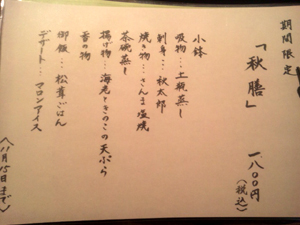 期間限定
「秋膳」 一八〇〇円
(税込)
小鉢
吸物…土瓶蒸し
刺身…秋太郎
焼き物…さんま塩焼
茶碗蒸し
揚げ物…海老ときのこの天ぷら
香の物
御飯…松茸ごはん
デザート…マロンアイス
(11月15日まで)